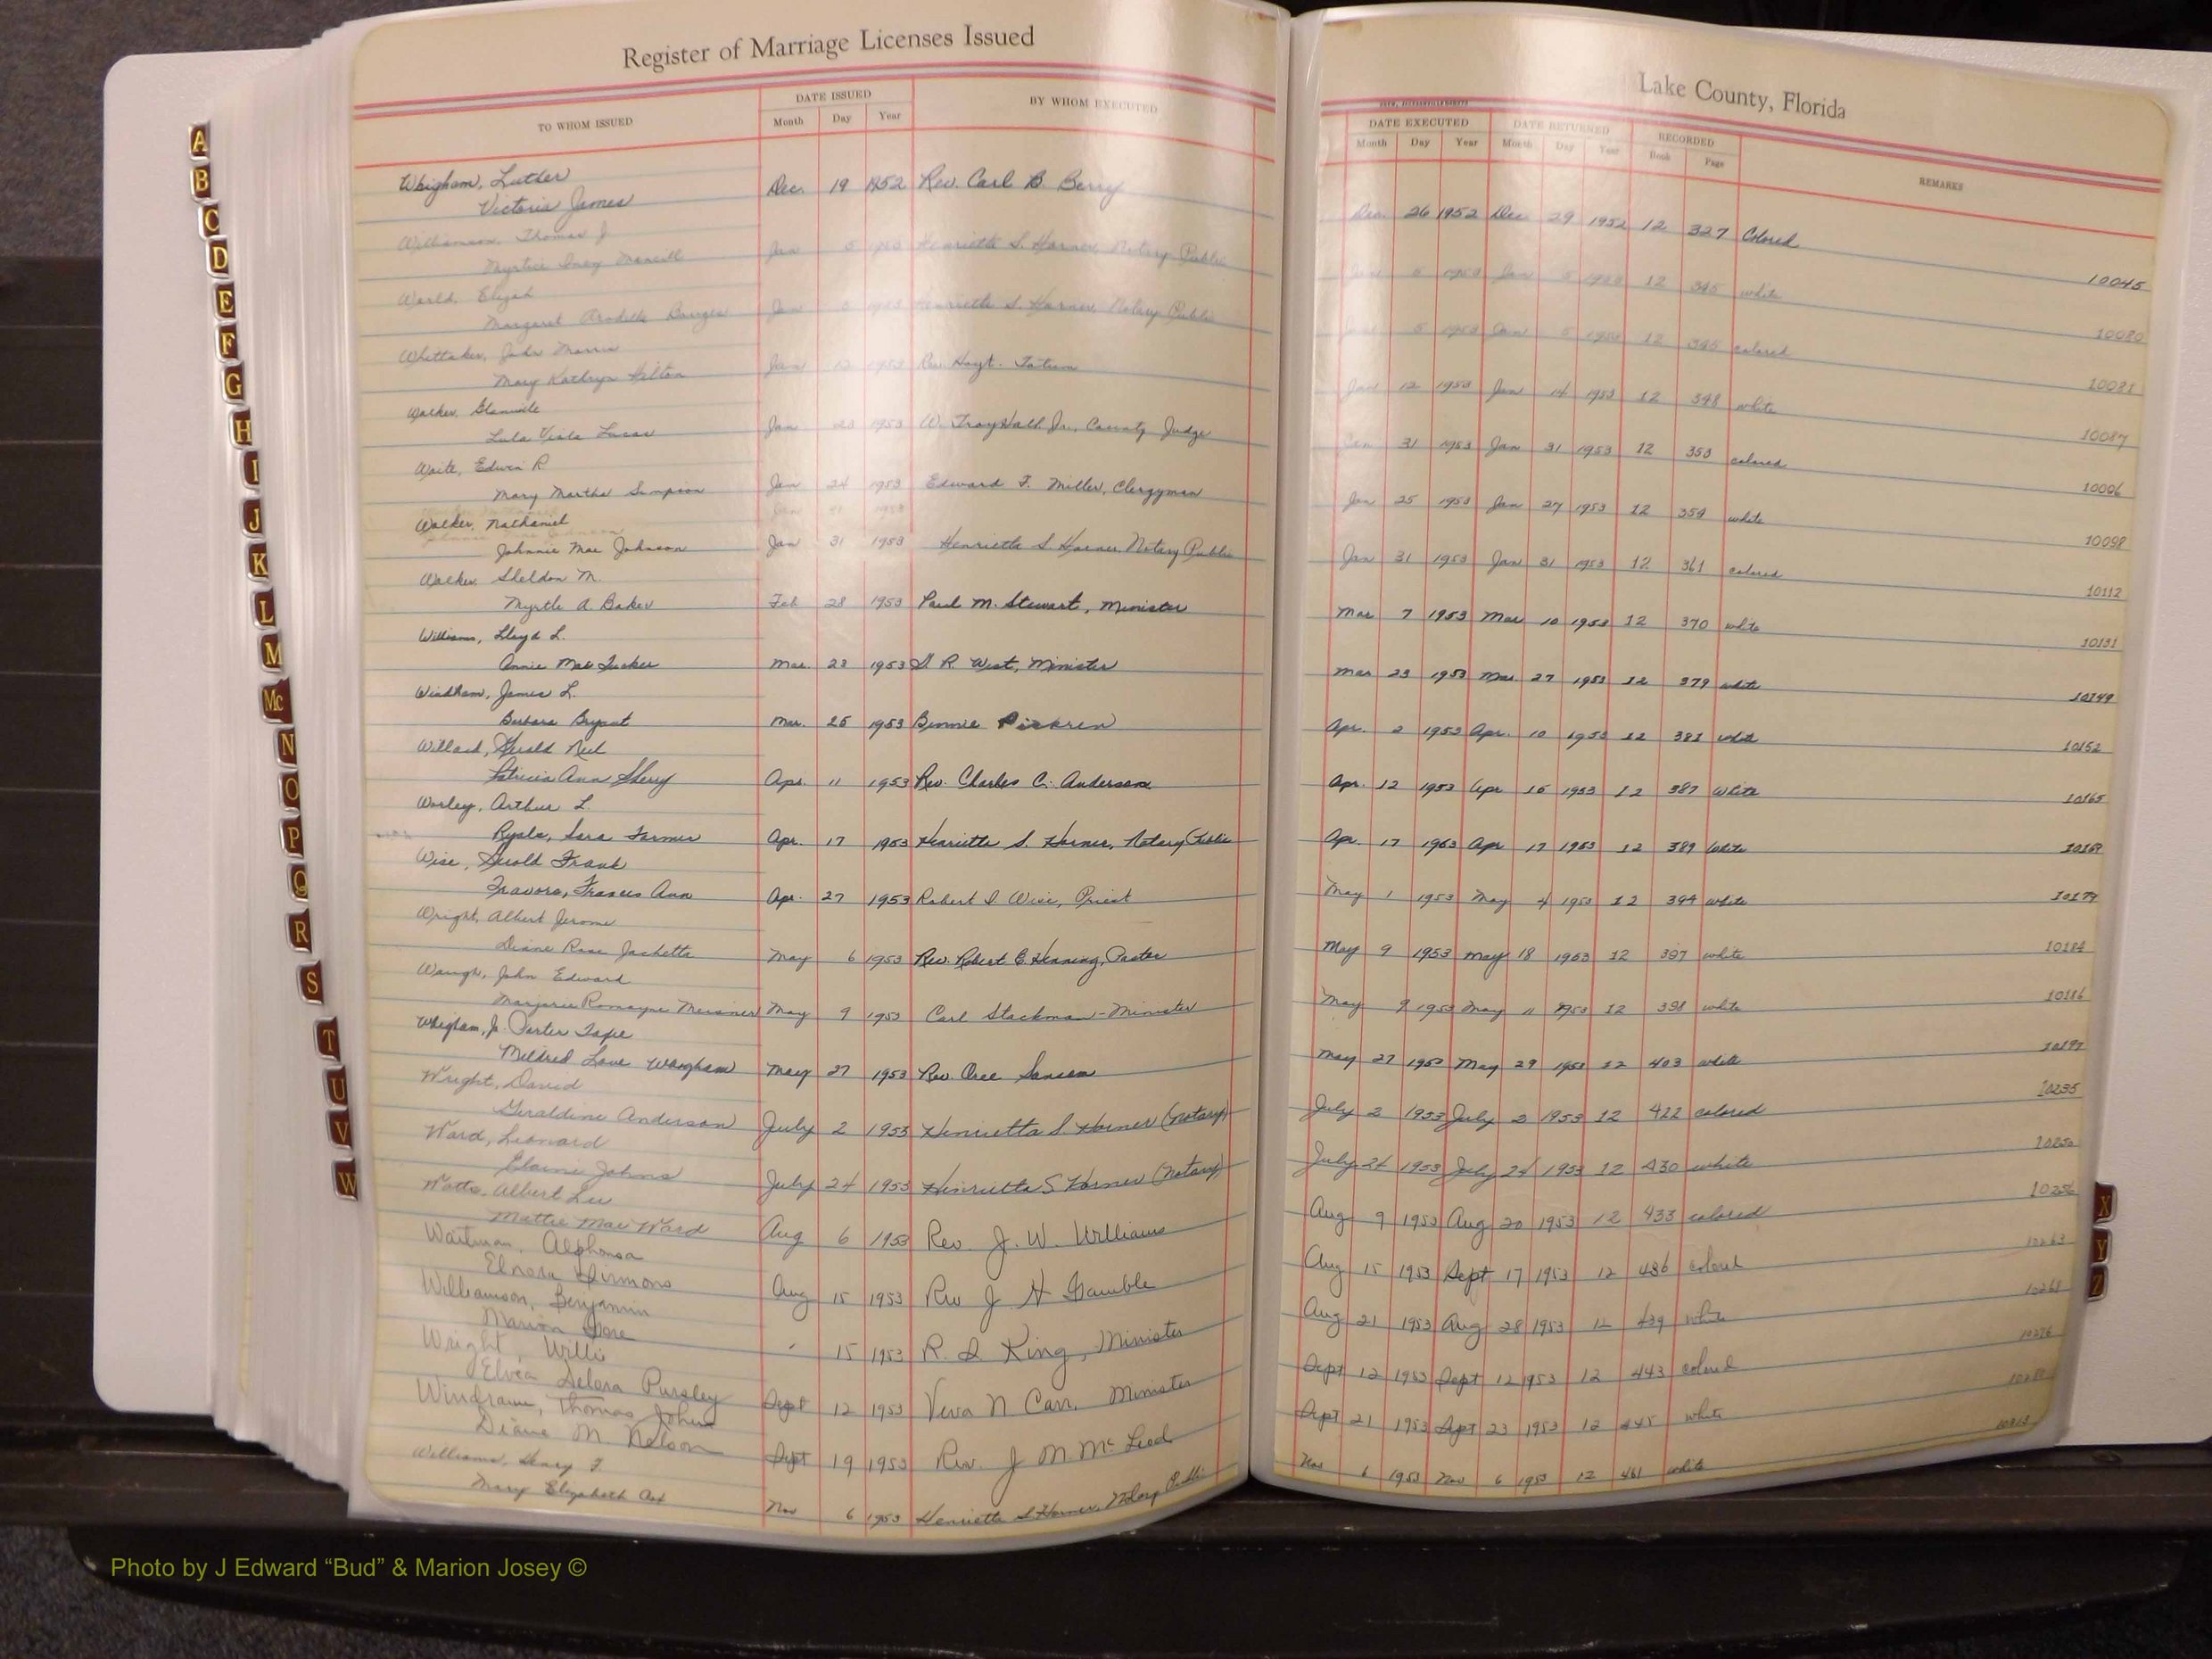 Register of Marriage Licenses Issued
TO WHOM ISSUED DATE ISSUED BY WHOM EXECUTED
Month Day Year
Whigham, Luther
Victoria James Dec. 19 1952 Rev. Carl B. Berry
Williamson, Thomas J
Myrtice Inez Jan 5 1953 Henrietta S. Horner, Notary Public
World, Elijah
Margaret Jan 5 1953 Henrietta S. Horner, Notary Public
Whittaker, John
Mary Kathryn Hilton Jan 12 1953 Rev. Hoyt. Tatum
Walker, Glanville
Lula Viola Lucas Jan 23 1953 W. Troy Hall Jr., County Judge
Waite, Edwin R
Mary Martha Simpson Jan 24 1953 Edward F. Miller, Clergyman
Walker, Nathaniel Jan 31 1953
Johnnie Mae Johnson Jan 31 1953 Henrietta S Horner, Notary Public
Walker, Sheldon M.
Myrtle A. Baker Feb 28 1953 Paul M. Stewart, Minister
Williams, Lloyd L.
Annie Mae Tucker Mar. 23 1953 R. West, Minister
Windham, James L.
Barbara Bryant Mar. 25 1953 Bennie
Willard, Gerald Neil
Patricia Ann Sherry Apr. 11 1953 Rev. Charles C. Anderson
Worley, Arthur L.
Ryals, Sara Farmer Apr. 17 1953 Henrietta S. Horner, Notary Public
Wise, Frank
Frances Ann Apr. 27 1953 Robert Wise, Priest
Wright, Albert Jerome
Diane Rose Jachetta May 6 1953 Rev. Robert E. Henning, Pastor
Waugh, John Edward
Marjorie Romayne May 9 1953 Carl Stackman - Minister
Whigham, Jr. Porter
Mildred Love Whigham May 27 1953 Rev.
Wright, David
Geraldine Anderson July 2 1953 Henrietta S. Horner (notary)
Ward, Leonard
Elaine Johns July 24 1953 Henrietta S Horner (notary)
Watts, Albert Lee
Mattie Mae Ward Aug 6 1953 Rev. J. W. Williams
Waitman, Alphonsa
Elnora Simmons Aug 15 1953 Rev J H Gamble
Williamson, Benjamin
Marion Gore " 15 1953 R. King, Minister
Wright, Willie
Elvea Delora Pursley Sept 12 1953 Veva N Carr, Minister
Windram, Thomas John
Diane M. Nelson Sept 19 1953 Rev. J M. McLeod
Williams, Henry F
Mary Elizabeth Nov 6 1953 Henrietta S Horner, Notary Public
Lake County, Florida
DATE EXECUTED DATE RETURNED RECORDED REMARKS
Month Day Year Month Day Year Book Page
Dec. 26 1952 Dec 29 1952 12 327 Colored 10045
Jan 5 1953 Jan 5 1953 12 345 white 10080
Jan 5 1953 Jan 5 1953 12 345 colored 10081
Jan 12 1953 Jan 14 1953 12 348 white 10087
Jan 31 1953 Jan 31 1953 12 353 colored
Jan 25 1953 Jan 27 1953 12 354 white 10098
Jan 31 1953 Jan 31 1953 12 361 colored 10112
Mar 7 1953 Mar 10 1953 12 370 white 10131
Mar 23 1953 Mar 27 1953 12 379 white 10149
Apr. 2 1953 Apr. 10 1953 12 381 white 10152
Apr. 12 1953 Apr 15 1953 12 387 White 10165
Apr. 17 1953 Apr 17 1953 12 389 White 10169
May 1 1953 May 4 1953 12 394 white 10179
May 9 1953 May 18 1953 12 397 white 10184
May 9 1953 May 11 1953 12 398 white 10186
May 27 1953 May 29 1953 12 403 white 10197
July 2 1953 July 2 1953 12 422 colored 10235
July 24 1953 July 24 1953 12 430 white 10250
Aug 9 1953 Aug 20 1953 12 433 colored 10256
Aug 15 1953 Sept 17 1953 12 436 colored 10263
Aug 21 1953 Aug 28 1953 12 439 white
Sept 12 1953 Sept 12 1953 12 443 colored 10276
Sept 21 1953 Sept 23 1953 12 445 white
Nov 6 1953 Nov 6 1953 12 461 white
A
B
C
D
E
F
G
H
I
J
K
L
M
Mc
N
O
P
Q
R
S
T
U
V
W
X
Y
Z
Photo by J Edward “Bud” & Marion Josey ©